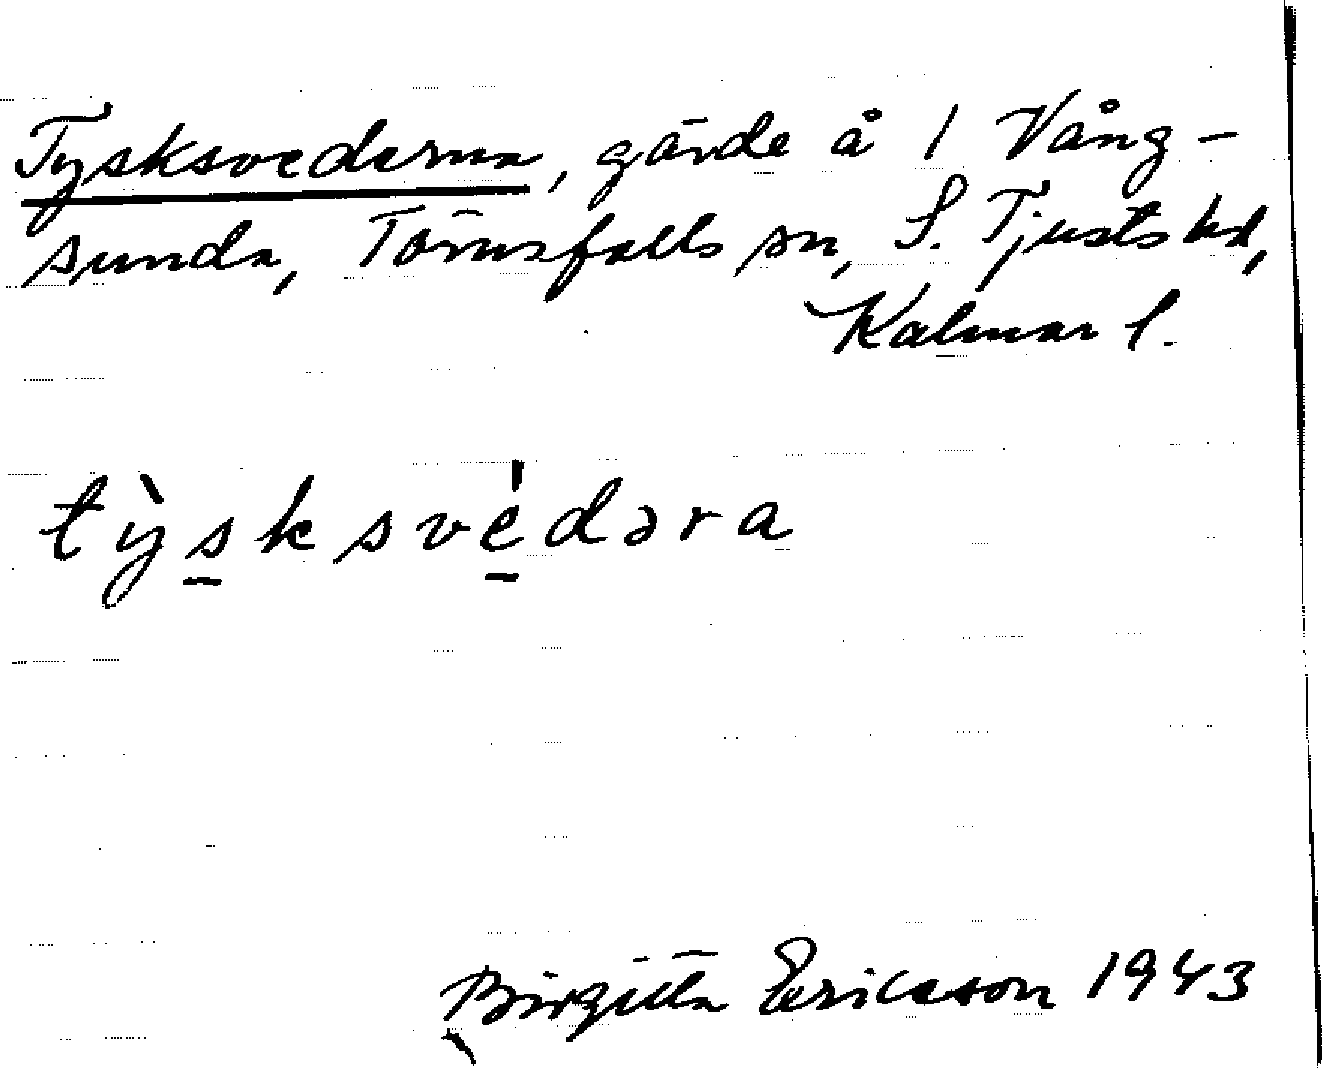 Tysksvederna, gärde å 1 Vång-
sunda, Törnsfalls sn, S. Tjusts hd,
Kalmar l.
tỳsksvédəra
Birgitta Ericsson 1943